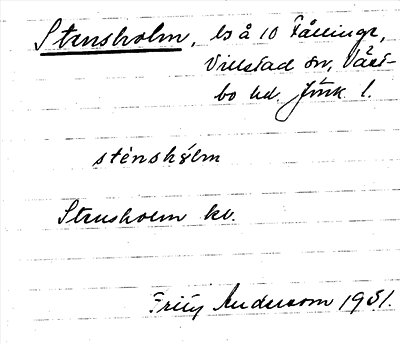 Stensholm, ls å 10 Fållinge,
Villstad sn, Väst-
bo hd. Jönk. l.
sténshòlm
Stensholm kv.
Fritz Andersson 1931.